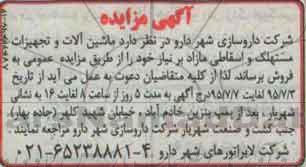 آگهی مزایده
شرکت داروسازی شهر دارو در نظر دارد ماشین آلات و تجهیزات
مستهلک و اسقاطی مازاد بر نیاز خود را از طریق مزایده عمومی به
فروش برساند. لذا از کلیه متقاضیان دعوت به عمل می آید از تاریخ
۹۵/۷/۳ لغایت ۹۵/۷/۷ درج آگهی به مدت ۵ روز از ساعت ۸ لغایت ۱۶ به نشانی
شهریار، بعد از پمپ بنزین خادم آباد، خیابان شهید کلهر (جاده بهار)،
جنب گشت و صنعت شهریار شرکت داروسازی شهر دارو مراجعه نمایند
شرکت لابراتوارهای شهر دارو ۴-۰۲۱-۶۵۲۳۸۸۸۱